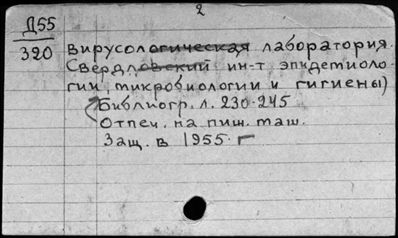 2
Д55
320
вирусологическая лаборатория.
Свердловский ин-т эпидемиоло-
гии, микробиологии и гигиены)
Библиогр. л. 230-245
Отпеч. на пиш. маш.
Защ. в 1955 г